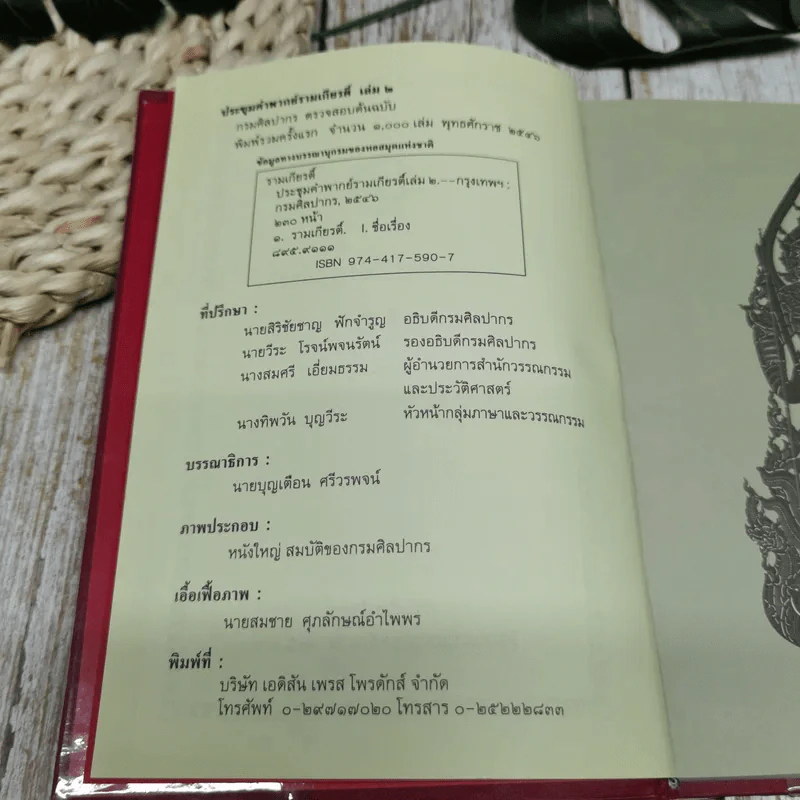 ประชุมคำพากย์รามเกียรติ์ เล่ม ๒
กรมศิลปากร ตรวจสอบต้นฉบับ
พิมพ์รวมครั้งแรก จำนวน ๑,๐๐๐ เล่ม พุทธศักราช ๒๕๔๖
ข้อมูลทางบรรณานุกรมของหอสมุดแห่งชาติ
รามเกียรติ์
ประชุมคำพากย์รามเกียรติ์เล่ม ๒.--กรุงเทพฯ :
กรมศิลปากร, ๒๕๔๖
๒๓๐ หน้า
๑. รามเกียรติ์. I. ชื่อเรื่อง
๘๙๕.๙๑๑๑
ISBN 974-417-590-7
ที่ปรึกษา :
นายสิริชัยชาญ ฟักจำรูญ อธิบดีกรมศิลปากร
นายวีระ โรจน์พจนรัตน์ รองอธิบดีกรมศิลปากร
นางสมศรี เอี่ยมธรรม ผู้อำนวยการสำนักวรรณกรรม
และประวัติศาสตร์
นางทิพวัน บุญวีระ หัวหน้ากลุ่มภาษาและวรรณกรรม
บรรณาธิการ :
นายบุญเตือน ศรีวรพจน์
ภาพประกอบ :
หนังใหญ่ สมบัติของกรมศิลปากร
เอื้อเฟื้อภาพ :
นายสมชาย ศุภลักษณ์อำไพพร
พิมพ์ที่ :
บริษัท เอดิสัน เพรส โพรดักส์ จำกัด
โทรศัพท์ ๐-๒๙๗๑๗๐๒๐ โทรสาร ๐-๒๕๒๒๒๘๓๓